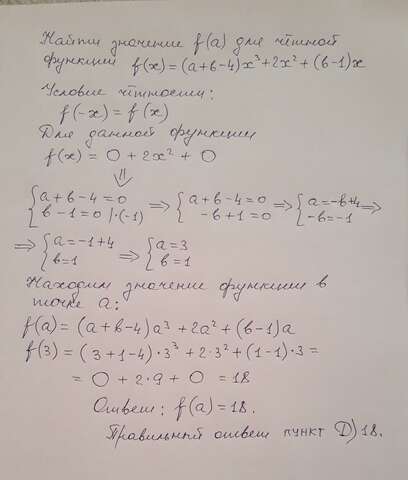 Найти значение f(a) для чётной
функции f(x) = (a+b-4)x³+2x²+(b-1)x
Условие чётности:
f(-x) = f(x)
Для данной функции
f(x) = 0 + 2x² + 0
⇓
{a+b-4=0 {b-1=0 |·(-1) ⇒ {a+b-4=0 {-b+1=0 ⇒ {a=-b+4 {-b=-1 ⇒
⇒ {a=-1+4 {b=1 ⇒ {a=3 {b=1
Находим значение функции в
точке a:
f(a) = (a+b-4)a³ + 2a² + (b-1)a
f(3) = (3+1-4)·3³ + 2·3² + (1-1)·3 =
= 0 + 2·9 + 0 = 18
Ответ: f(a) = 18.
Правильный ответ пункт D) 18.